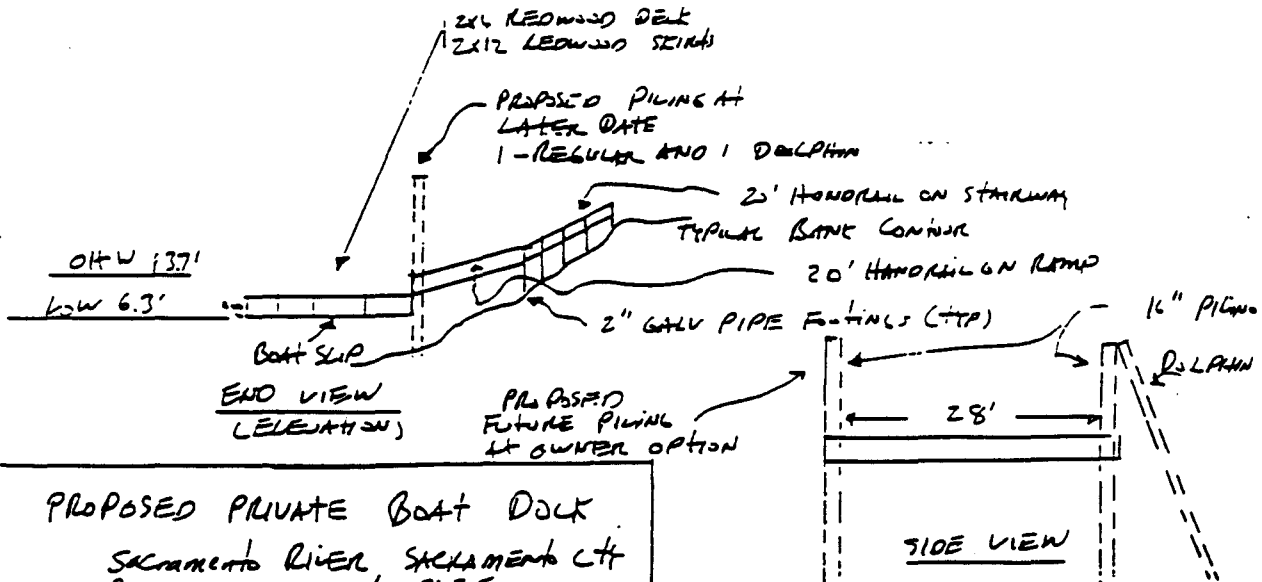 2X6 REDWOOD DECK
2X12 REDWOOD SKIRTS
PROPOSED PILING At
LATER DATE
1-REGULAR AND 1 DOLPHIN
20' HANDRAIL ON STAIRWAY
TYPICAL BANK CONTOUR
20' HANDRAIL ON RAMP
OHW 13.7'
LOW 6.3'
2" GALV PIPE FOOTINGS (TYP)
16" PILING
BOAT SLIP
DOLPHIN
END VIEW
(ELEVATION)
PROPOSED
FUTURE PILING
At OWNER OPTION
28'
PROPOSED PRIVATE BOAT DOCK
SACRAMENTO RIVER, SACRAMENTO
SIDE VIEW